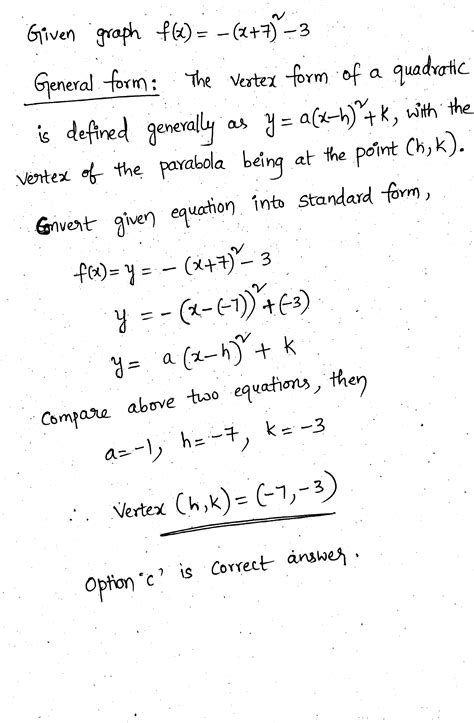 Given graph f(x) = -(x+7)² - 3
General form: The vertex form of a quadratic
is defined generally as y = a(x-h)² + k, with the
vertex of the parabola being at the point (h,k).
Convert given equation into standard form,
f(x) = y = - (x+7)² - 3
y = - (x-(-7))² + (-3)
y = a (x-h)² + k
Compare above two equations, then
a=-1, h=-7, k=-3
∴ Vertex (h,k) = (-7,-3)
Option 'c' is correct answer.